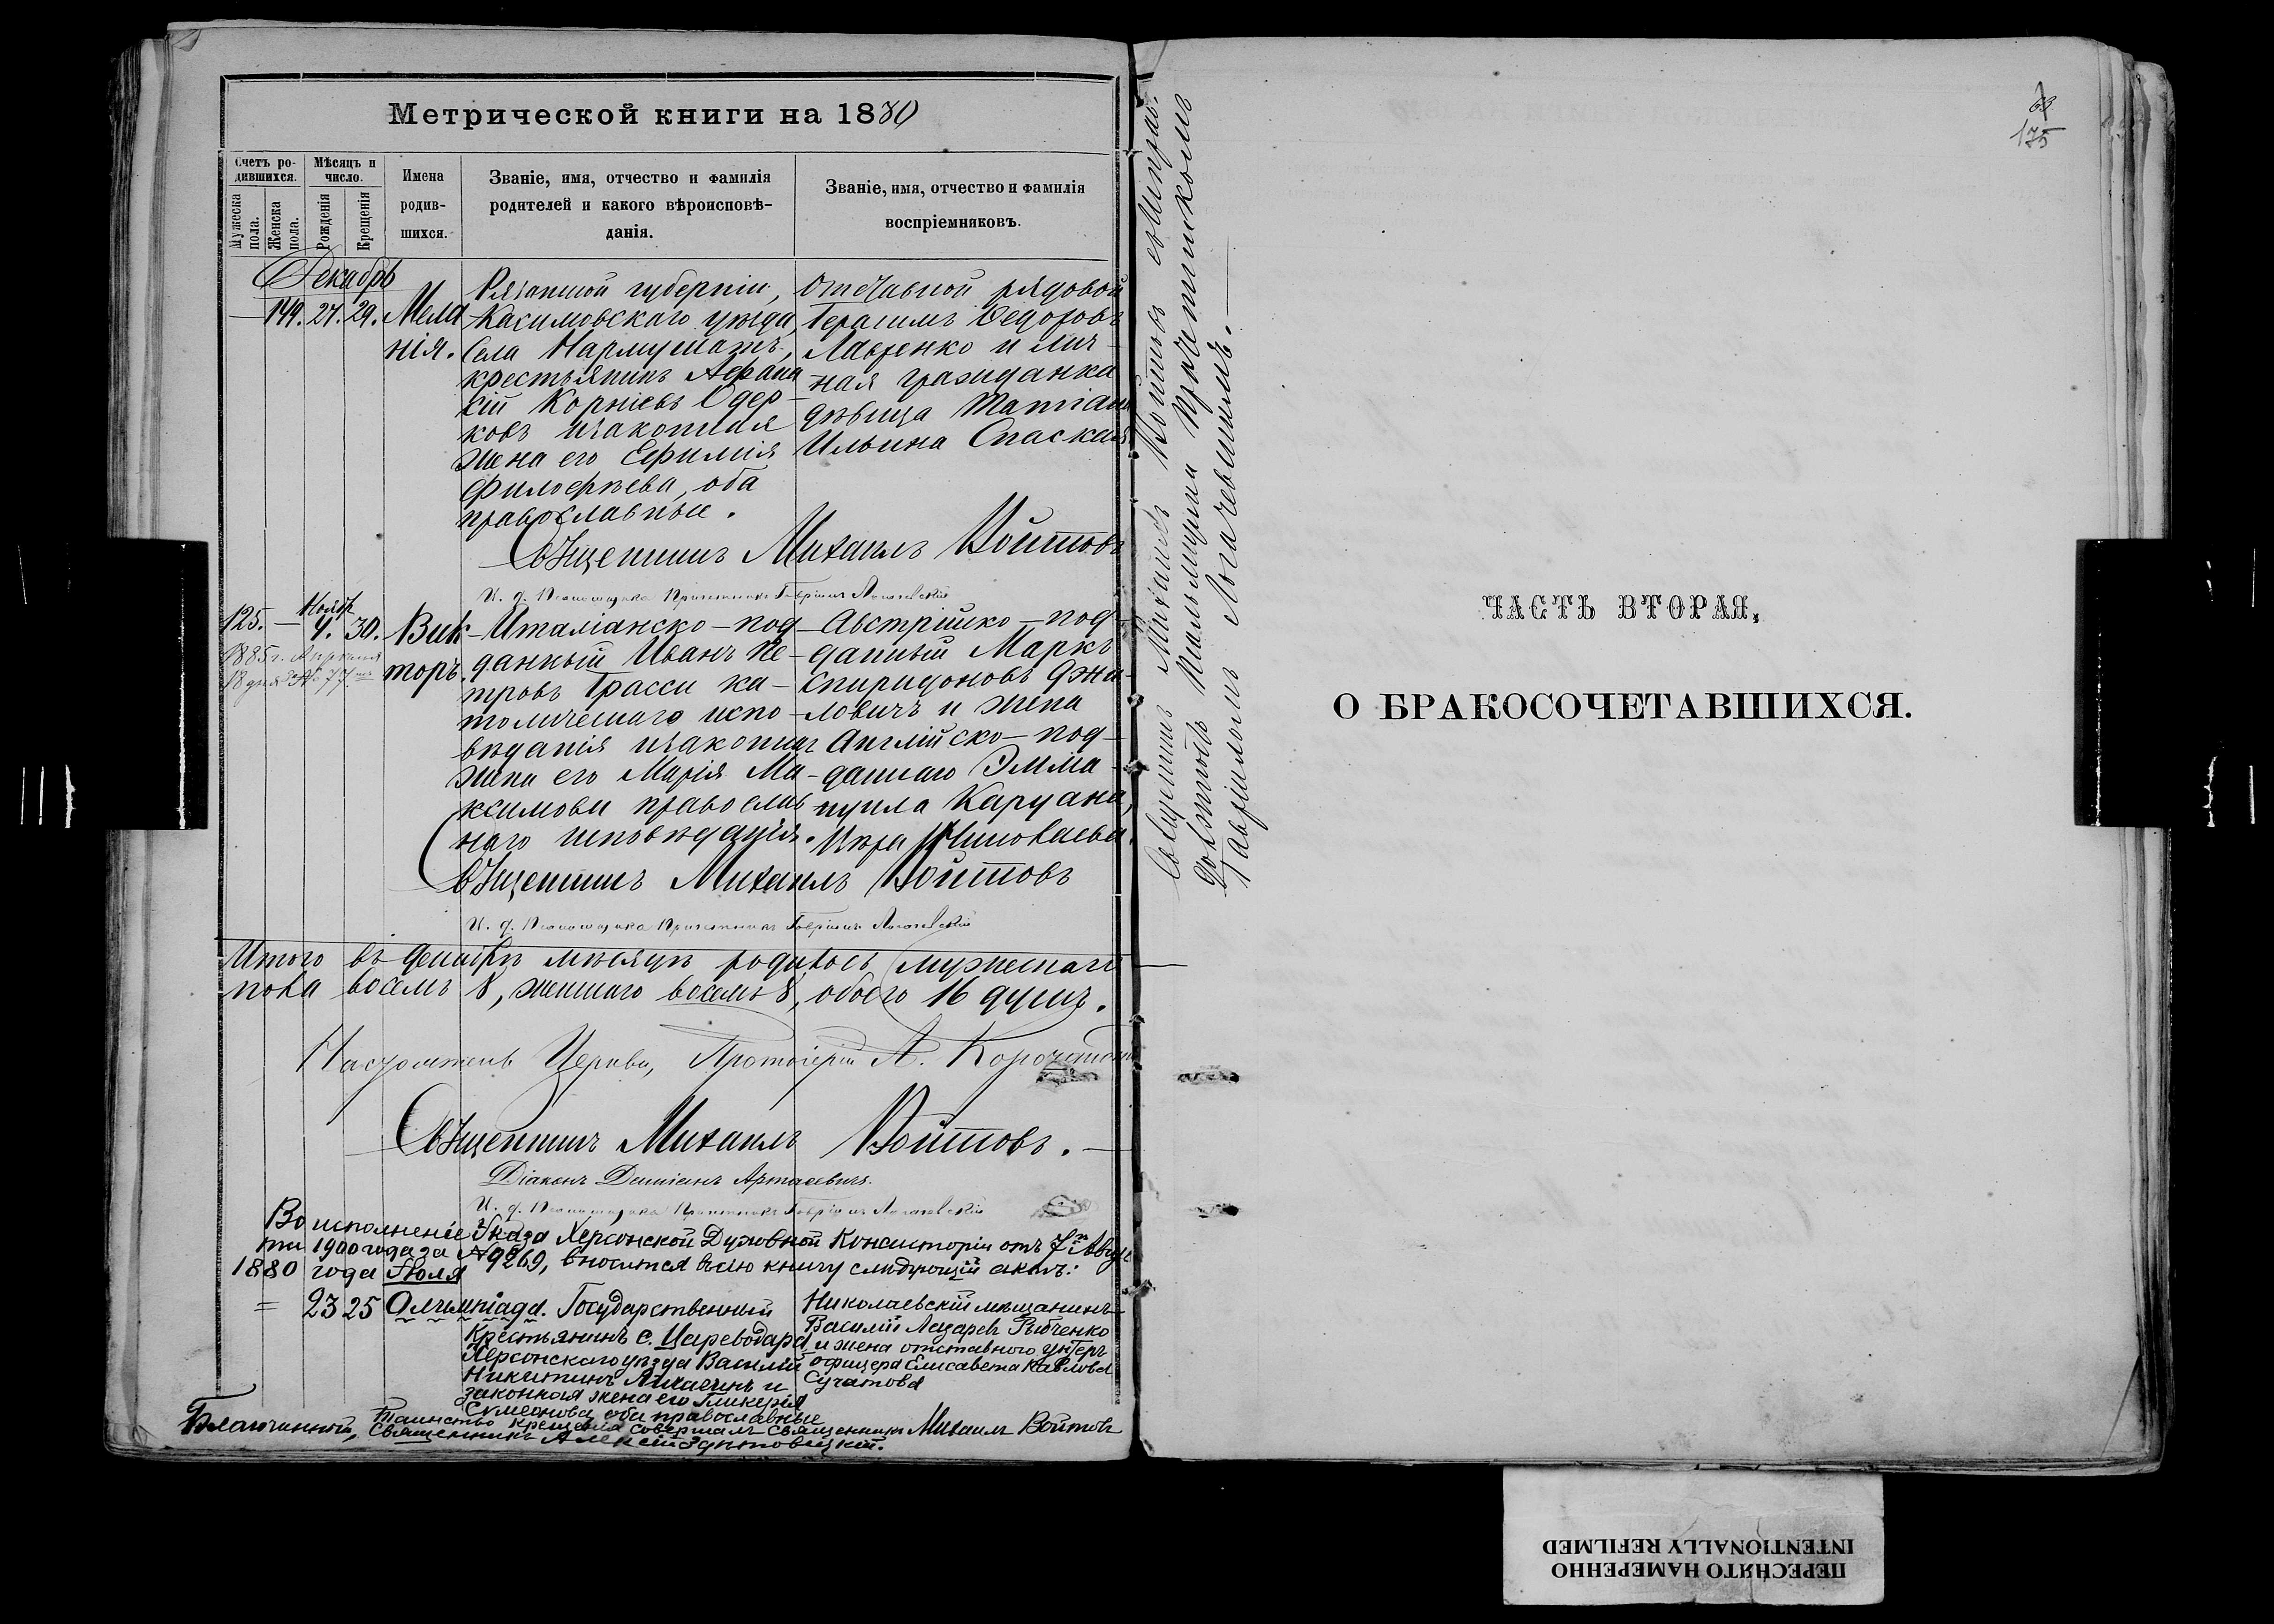 Метрической книги на 1880
Счетъ ро-
дившихся.
Мужеска
пола.
Женска
пола.
Мѣсяцъ и
число.
Рожденія
Крещенія
Имена
родив-
шихся.
Званіе, имя, отчество и фамилія
родителей и какого вѣроисповѣ-
данія.
Званіе, имя, отчество и фамилія
воспріемниковъ.
Декабрь
149. 27. 29. Мела
нія.
Рязанской губерніи,
Касимовскаго уѣзда,
села
крестьянинъ Афана
сій Корніевъ
ковъ и законная
жена его Ефимія
оба
православные.
Отставной рядовой
Герасимъ Федоровъ
Лавренко и лич-
ная гражданка
дѣвица
Ильина Спаская
Священникъ Михаилъ Войтовъ
И. д. Псаломщика Причетникъ Гавріилъ
125. — Ноябр
4. 30. Вик-
торъ.
1885 г. Апрѣля
18 дня № 77
Италіанско-под-
данный Иванъ Пе-
тровъ Грасси ка-
толическаго испо-
вѣданія и законная
жена его Марія Ма-
ксимова православ
наго исповѣданія.
Австрійско-под-
данный Маркъ
Спиридоновъ
ловичъ и жена
Англійско-под-
даннаго Эмма-
нуила Каруана,
Вѣра Николаева.
Священникъ Михаилъ Войтовъ
И. д. Псаломщика Причетникъ Гавріилъ
Итого въ декабрѣ мѣсяцѣ родилось мужескаго
пола восемь 8, женскаго восемь 8, обоего 16 душъ.
Настоятель Церкви, Протоіерей А.
Священникъ Михаилъ Войтовъ.
Діаконъ Даміанъ
И. д. Псаломщика Причетникъ Гавріилъ
Во исполненіе Указа Херсонской Духовной Консисторіи отъ 7го Авгус
та 1900 года за № 9269, вносится въ сію книгу слѣдующій актъ:
1880 года Іюля
= 23 25 Олимпіада.
Государственный
крестьянинъ с. Цареводара
Херсонскаго уѣзда Василій
Никитинъ и
законная жена его Гликерія
Симеонова, оба православные
Николаевскій мѣщанинъ
Василій Лазаревъ
и жена отставного унтеръ
офицера Елисавета Павлова
Таинство крещенія совершалъ Священникъ Михаилъ Войтовъ
Благочинный, Священникъ Алексій
Священникъ Михаилъ Войтовъ съ исправ.
должность Псаломщика Причетникомъ
Гавріиломъ
175
ЧАСТЬ ВТОРАЯ,
О БРАКОСОЧЕТАВШИХСЯ.
ПЕРЕСНЯТО НАМЕРЕННО
INTENTIONALLY REFILMED